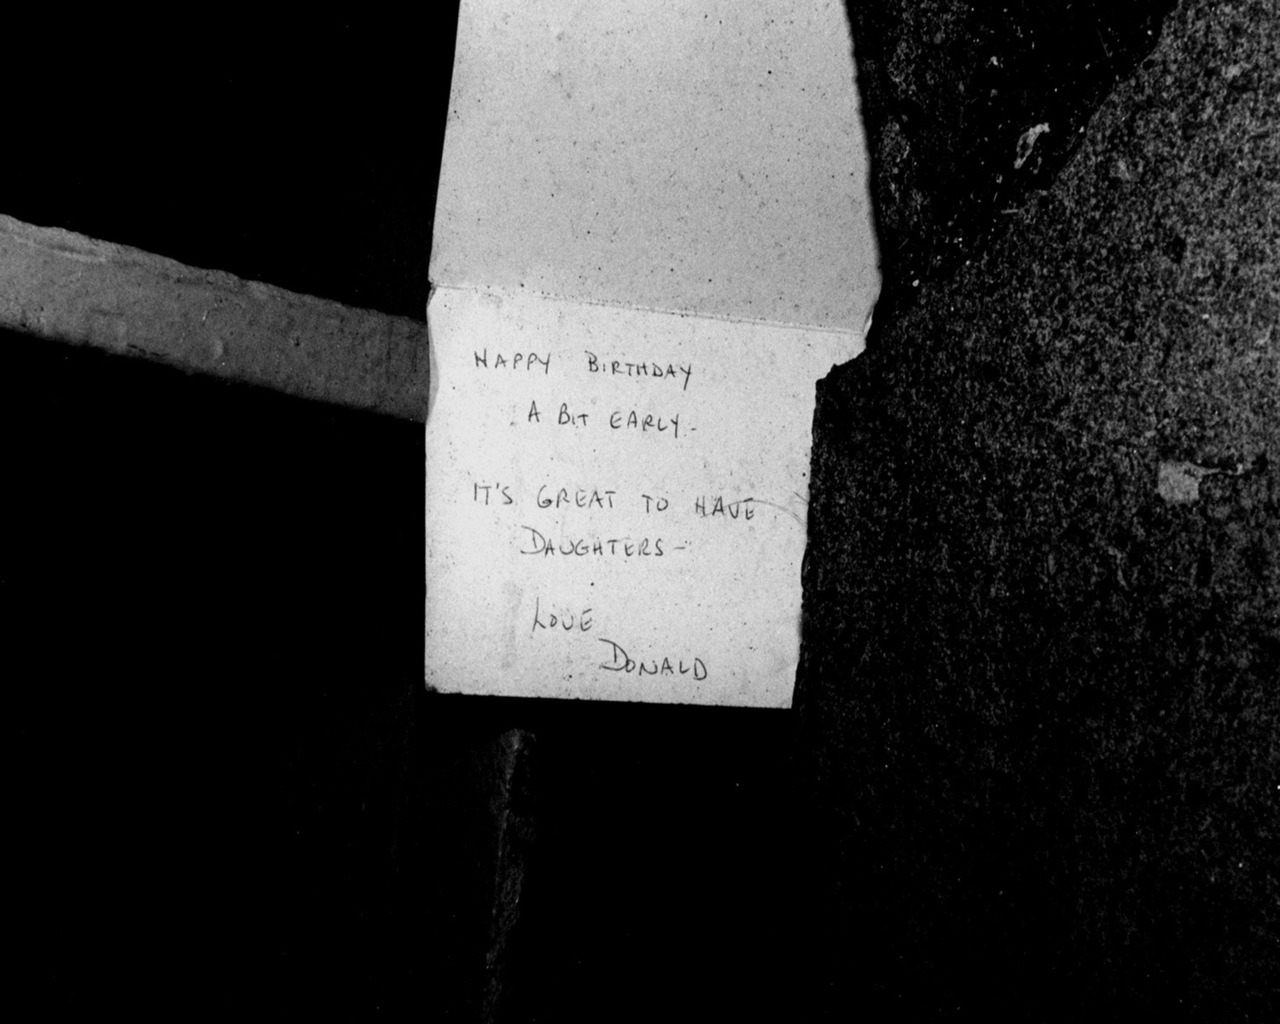 HAPPY BIRTHDAY
A BIT EARLY-
IT'S GREAT TO HAVE
DAUGHTERS-
LOVE
DONALD